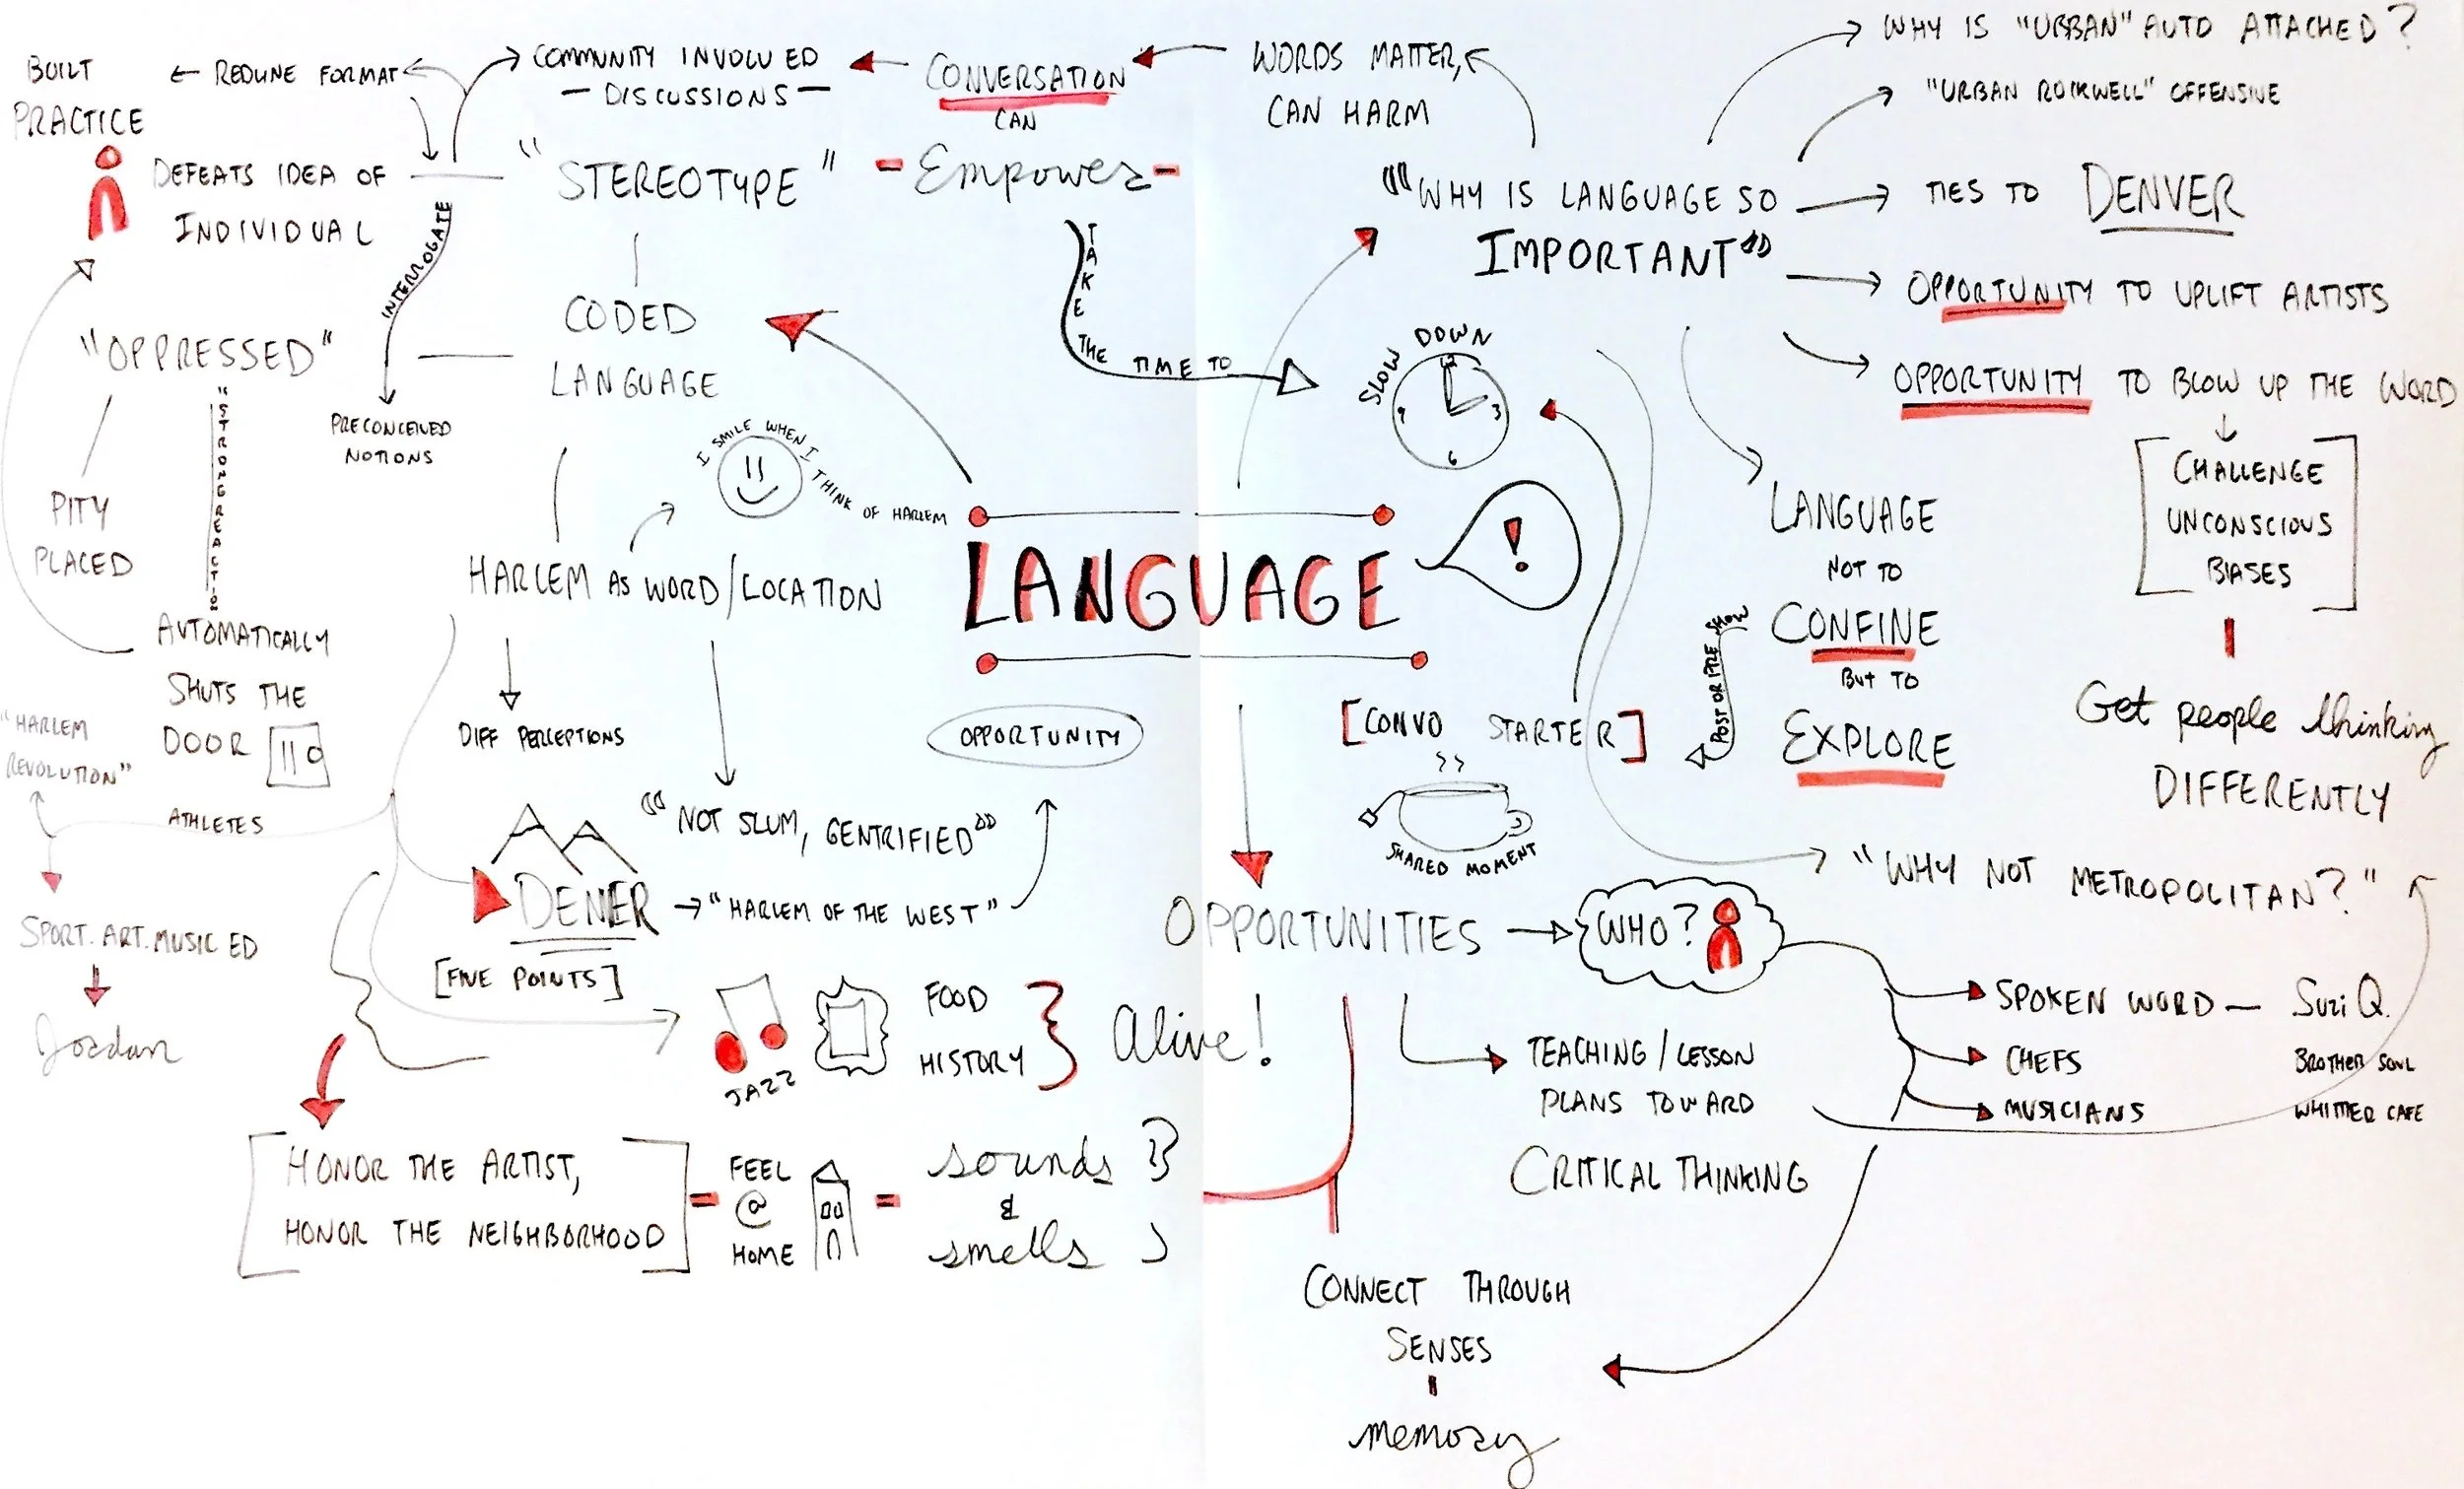 BUILT
PRACTICE
← REDLINE FORMAT
COMMUNITY INVOLVED
— DISCUSSIONS —
CONVERSATION
CAN
- Empower -
WORDS MATTER,
CAN HARM
WHY IS "URBAN" AUTO ATTACHED?
"URBAN ROCKWELL" OFFENSIVE
DEFEATS IDEA OF
INDIVIDUAL
"STEREOTYPE"
INTERROGATE
PRECONCEIVED
NOTIONS
CODED
LANGUAGE
TAKE THE TIME TO
SLOW DOWN
12
3
6
9
"WHY IS LANGUAGE SO
IMPORTANT"
TIES TO DENVER
OPPORTUNITY TO UPLIFT ARTISTS
OPPORTUNITY TO BLOW UP THE WORD
CHALLENGE
UNCONSCIOUS
BIASES
Get people thinking
DIFFERENTLY
"OPPRESSED"
PITY
PLACED
"STRONG REACTION
AUTOMATICALLY
SHUTS THE
DOOR
I SMILE WHEN I THINK OF HARLEM
HARLEM AS WORD/LOCATION
DIFF PERCEPTIONS
LANGUAGE
!
OPPORTUNITY
[CONVO STARTER]
SHARED MOMENT
POST OR PRE SHOW
LANGUAGE
NOT TO
CONFINE
BUT TO
EXPLORE
"WHY NOT METROPOLITAN?"
"HARLEM
REVOLUTION"
ATHLETES
SPORT. ART. MUSIC ED
Jordan
"NOT SLUM, GENTRIFIED"
DENVER → "HARLEM OF THE WEST"
[FIVE POINTS]
JAZZ
FOOD
HISTORY
Alive!
HONOR THE ARTIST,
HONOR THE NEIGHBORHOOD
=
FEEL
@
HOME
=
sounds
&
smells
OPPORTUNITIES
WHO?
SPOKEN WORD — Suzi Q.
CHEFS BROTHER SOUL
MUSICIANS WHITTIER CAFE
TEACHING/LESSON
PLANS TOWARD
CRITICAL THINKING
CONNECT THROUGH
SENSES
memory